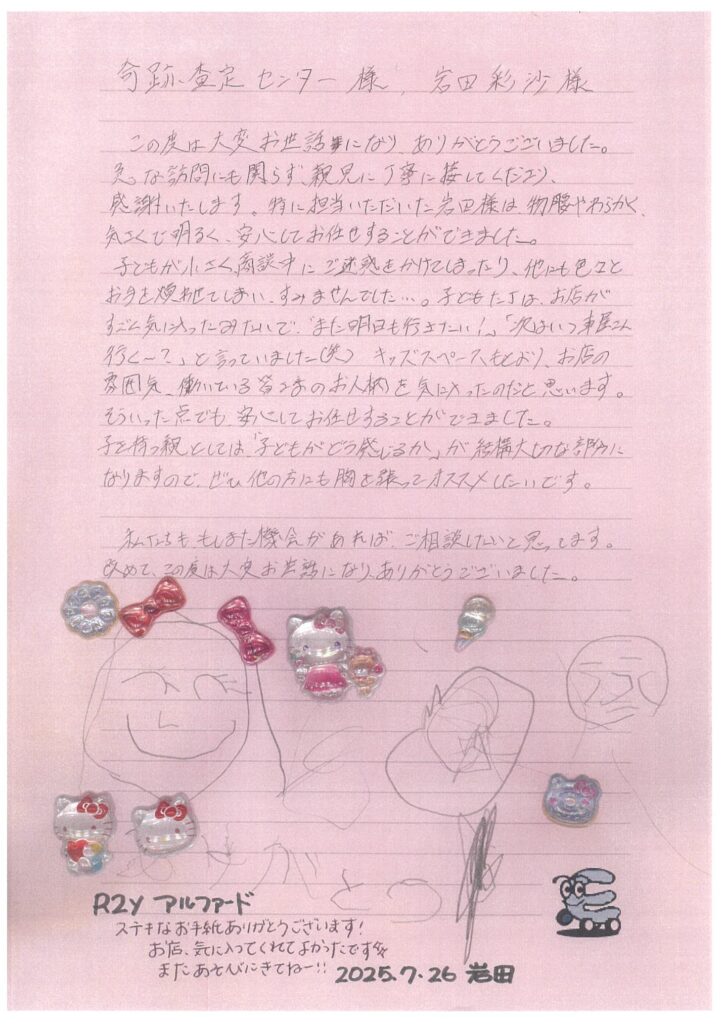 奇跡、査定センター様、岩田彩沙様
この度は大変お世話になり、ありがとうございました。
急な訪問にも関らず、親身に丁寧に接してくださり、
感謝いたします。特に担当いただいた岩田様は物腰やわらかく、
気さくで明るく、安心してお任せすることができました。
子どもが小さく、商談中にご迷惑をかけてしまったり、他にも色々と
お手を煩わせてしまい、すみませんでした…。子どもたちは、お店が
すごく気に入ったみたいで、「また明日も行きたい!」、「次はいつ車屋さん
行く〜?」と言っていました(笑) キッズスペースもとより、お店の
雰囲気、働いている皆さまのお人柄を気に入ったのだと思います。
そういった点でも、安心してお任せすることができました。
子を持つ親としては、「子どもがどう感じるか」が結構大切な部分に
なりますので、ぜひ他の方にも胸を張ってオススメしたいです。
私たちも、もしまた機会があれば、ご相談したいと思ってます。
改めて、この度は大変お世話になり、ありがとうございました。
ありがとう
R2y アルファード
ステキなお手紙ありがとうございます!
お店、気に入ってくれてよかったです
またあそびにきてねー!!
2025.7.26 岩田